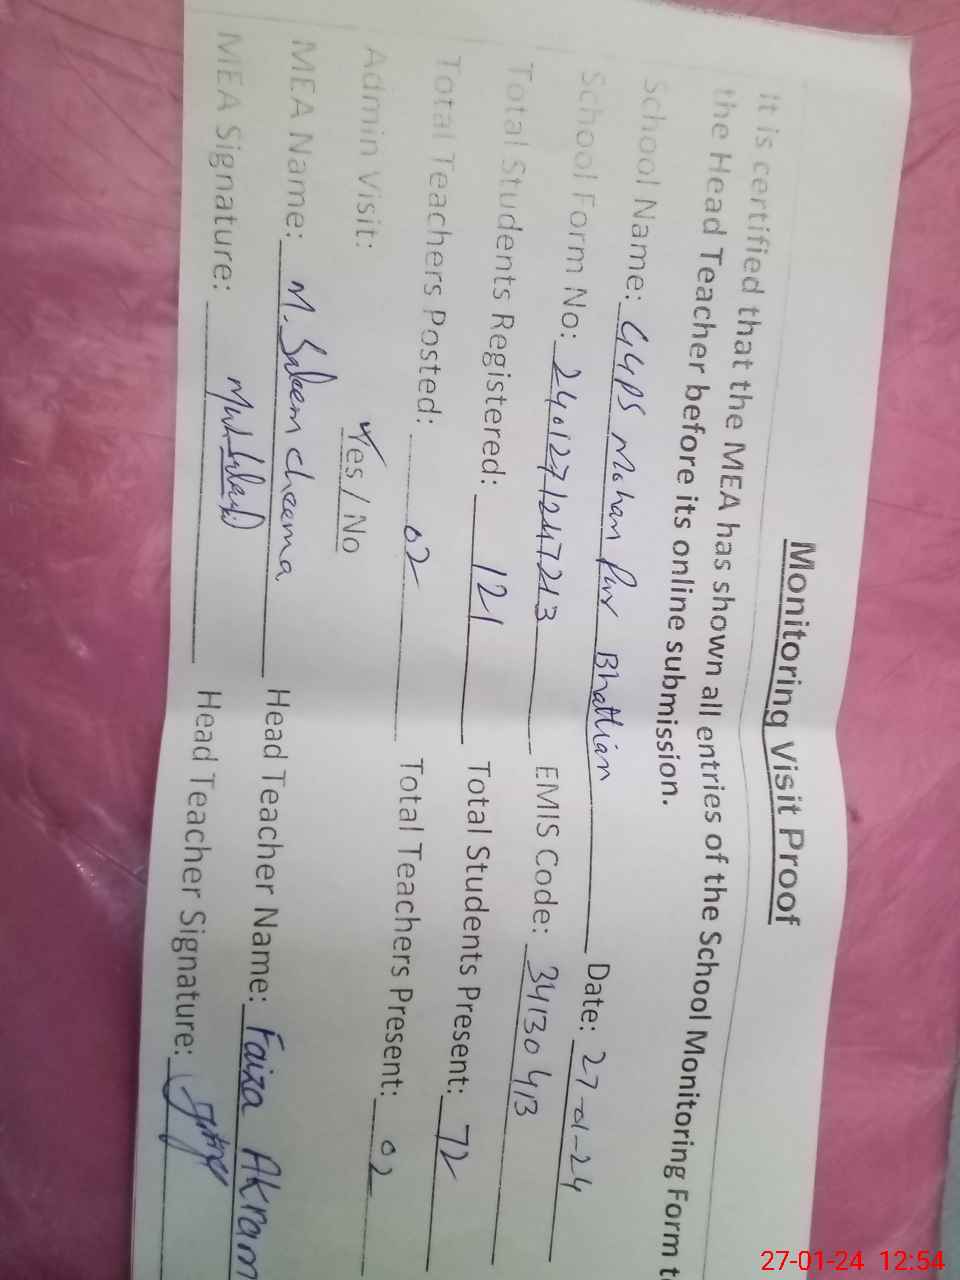 Monitoring Visit Proof
It is certified that the MEA has shown all entries of the School Monitoring Form t
the Head Teacher before its online submission.
School Name: GGPS Mohan Pur Bhattian Date: 27-01-24
School Form No: 2401271247213 EMIS Code: 34130413
Total Students Registered: 121 Total Students Present: 72
Total Teachers Posted: 02 Total Teachers Present: 02
Admin Visit: Yes / No
MEA Name: M. Saleem cheema Head Teacher Name: Faiza Akram
MEA Signature: Head Teacher Signature:
27-01-24 12:54